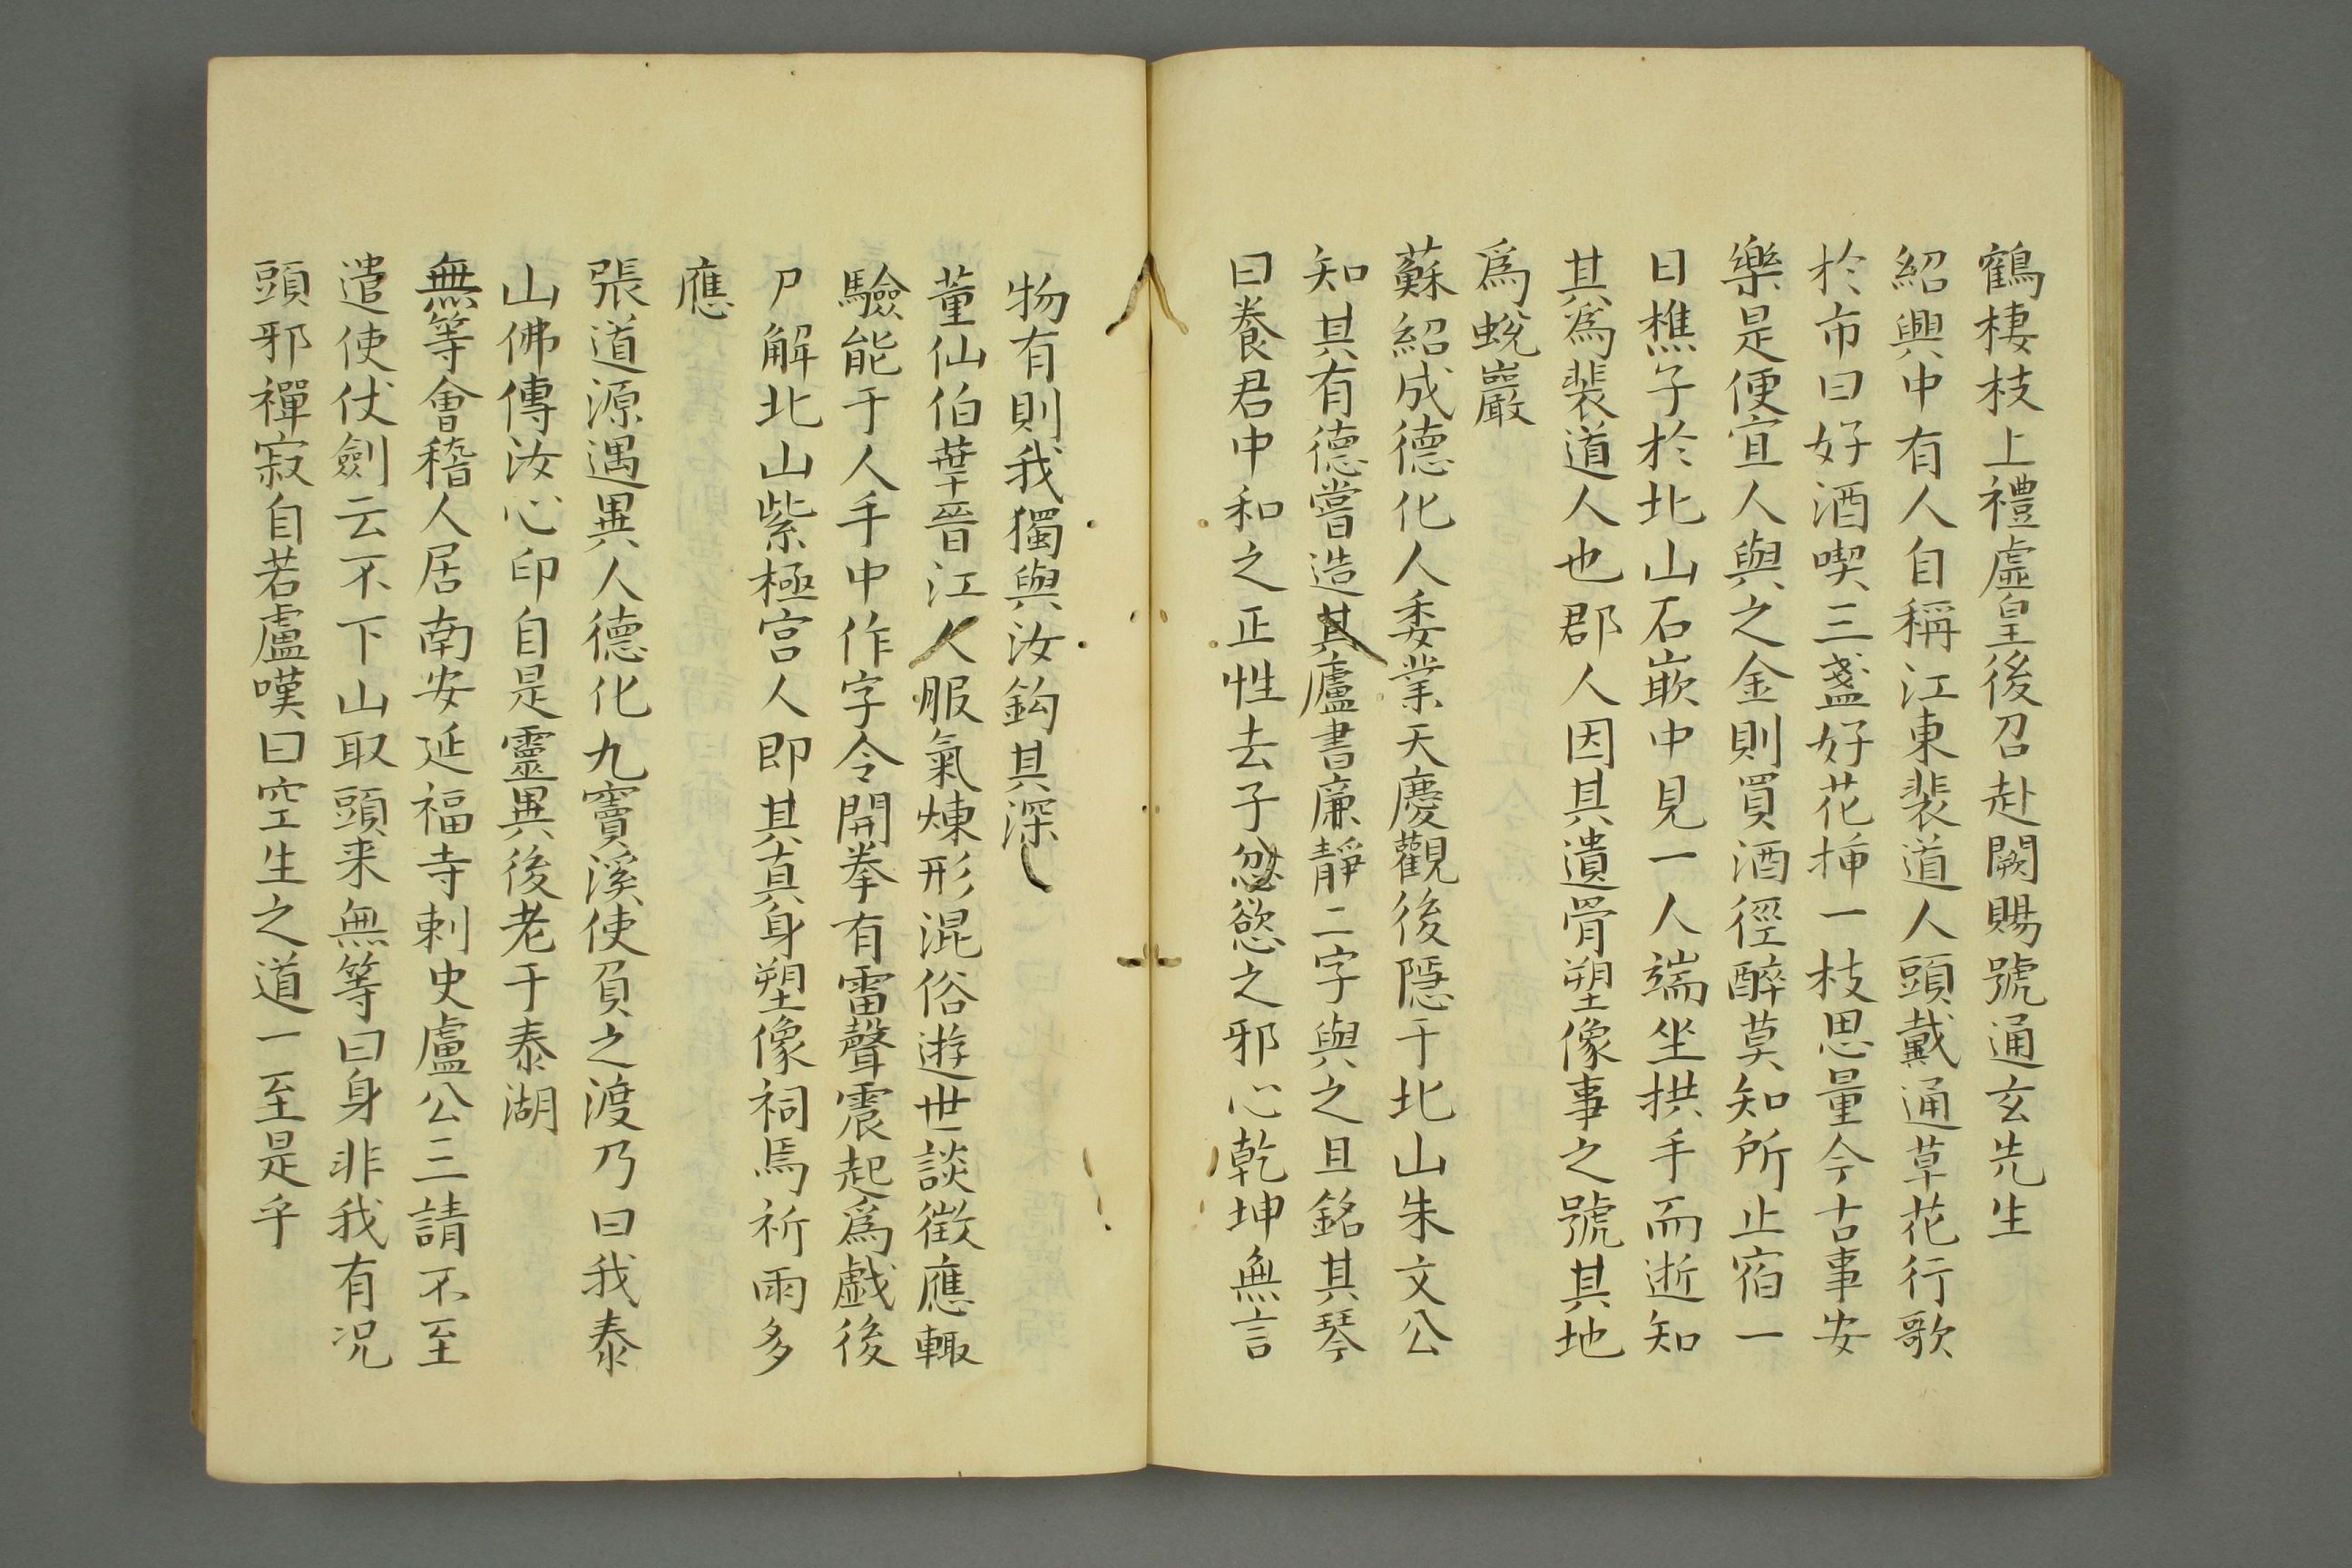 鶴棲枝上禮虛皇後召赴闕賜號通玄先生
紹興中有人自稱江東裴道人頭戴通草花行歌
於市曰好酒喫三盞好花揷一枝思量今古事安
樂是便宜人與之金則買酒徑醉莫知所止宿一
日樵子於北山石嵌中見一人端坐拱手而逝知
其爲裴道人也郡人因其遺骨塑像事之號其地
爲蛻巖
蘇紹成德化人委業天慶觀後隱于北山朱文公
知其有德嘗造其廬書廉靜二字與之且銘其琴
曰養君中和之正性去子忽慾之邪心乾坤無言
物有則我獨與汝鈎其深
董仙伯葦晉江人服氣煉形混俗遊世談徵應輙
驗能于人手中作字令開拳有雷聲震起爲戱後
尸解北山紫極宫人即其真身塑像祠焉祈雨多
應
張道源遇異人德化九竇溪使負之渡乃曰我泰
山佛傳汝心印自是靈異後老于泰湖
無等會稽人居南安延福寺刺史盧公三請不至
遣使仗劍云不下山取頭来無等曰身非我有况
頭邪禪寂自若盧嘆曰空生之道一至是乎